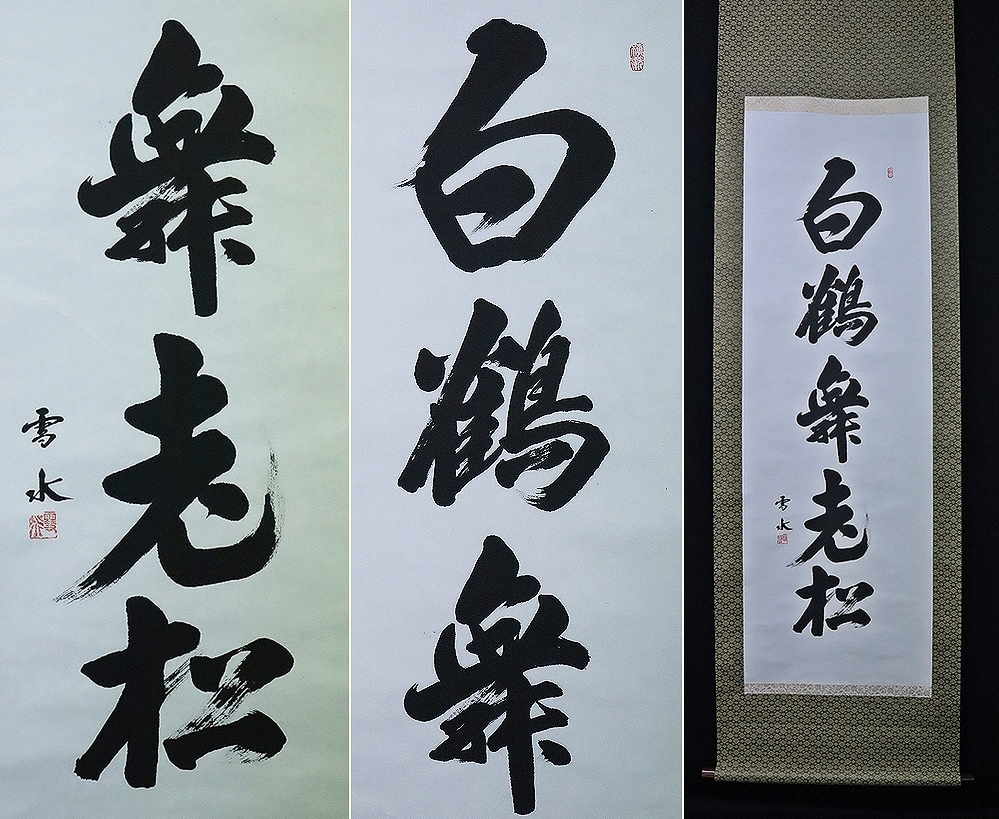 舞老松
雪水
白鶴舞
白鶴舞老松
雪水